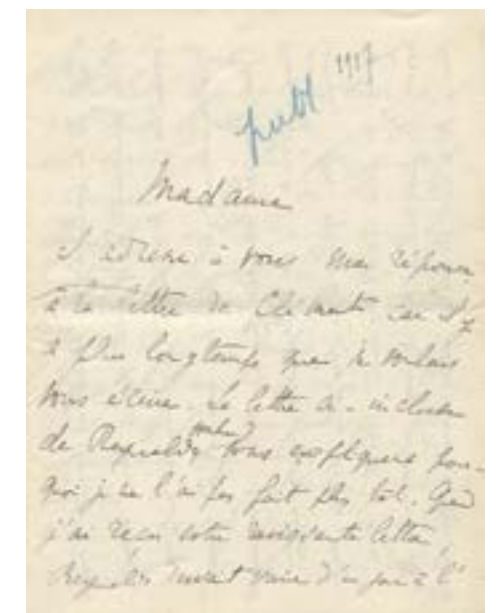 publ 1917
Madame
J'adresse à vous ma réponse
à la lettre de Clément car il y
a plus longtemps que je voulais
vous écrire. La lettre ci-incluse
de Reynaldo vous expliquera pour-
quoi je ne l'ai pas fait plus tôt. Quand
j'ai reçu votre ravissante lettre,
Reynaldo devait venir d'un jour à l'